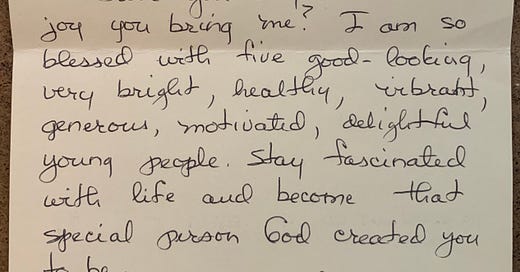 joy you bring me? I am so
blessed with five good-looking,
very bright, healthy, vibrant,
generous, motivated, delightful
young people. Stay fascinated
with life and become that
special person God created you
to be